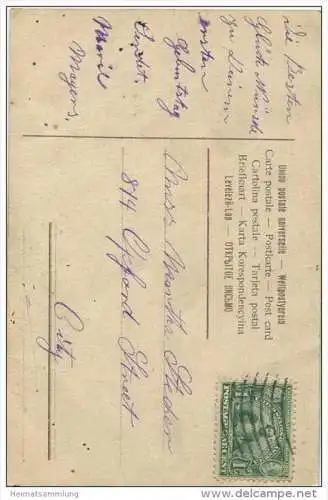 Die Besten
Glück Wünsche
zu Deinem
ersten
Geburtstag
sendet
Marie
Mayers,
Union postale universelle — Weltpostverein
Carte postale — Postcarte — Post card
Cartolina postale — Tarjeta postal
Briefkaart — Karta Korespondencyjna
Levelező-Lap — ОТКРЫТОЕ ПИСЬМО
Miss Martha
874 Street
City
POSTAGE
heimatsammlung.de